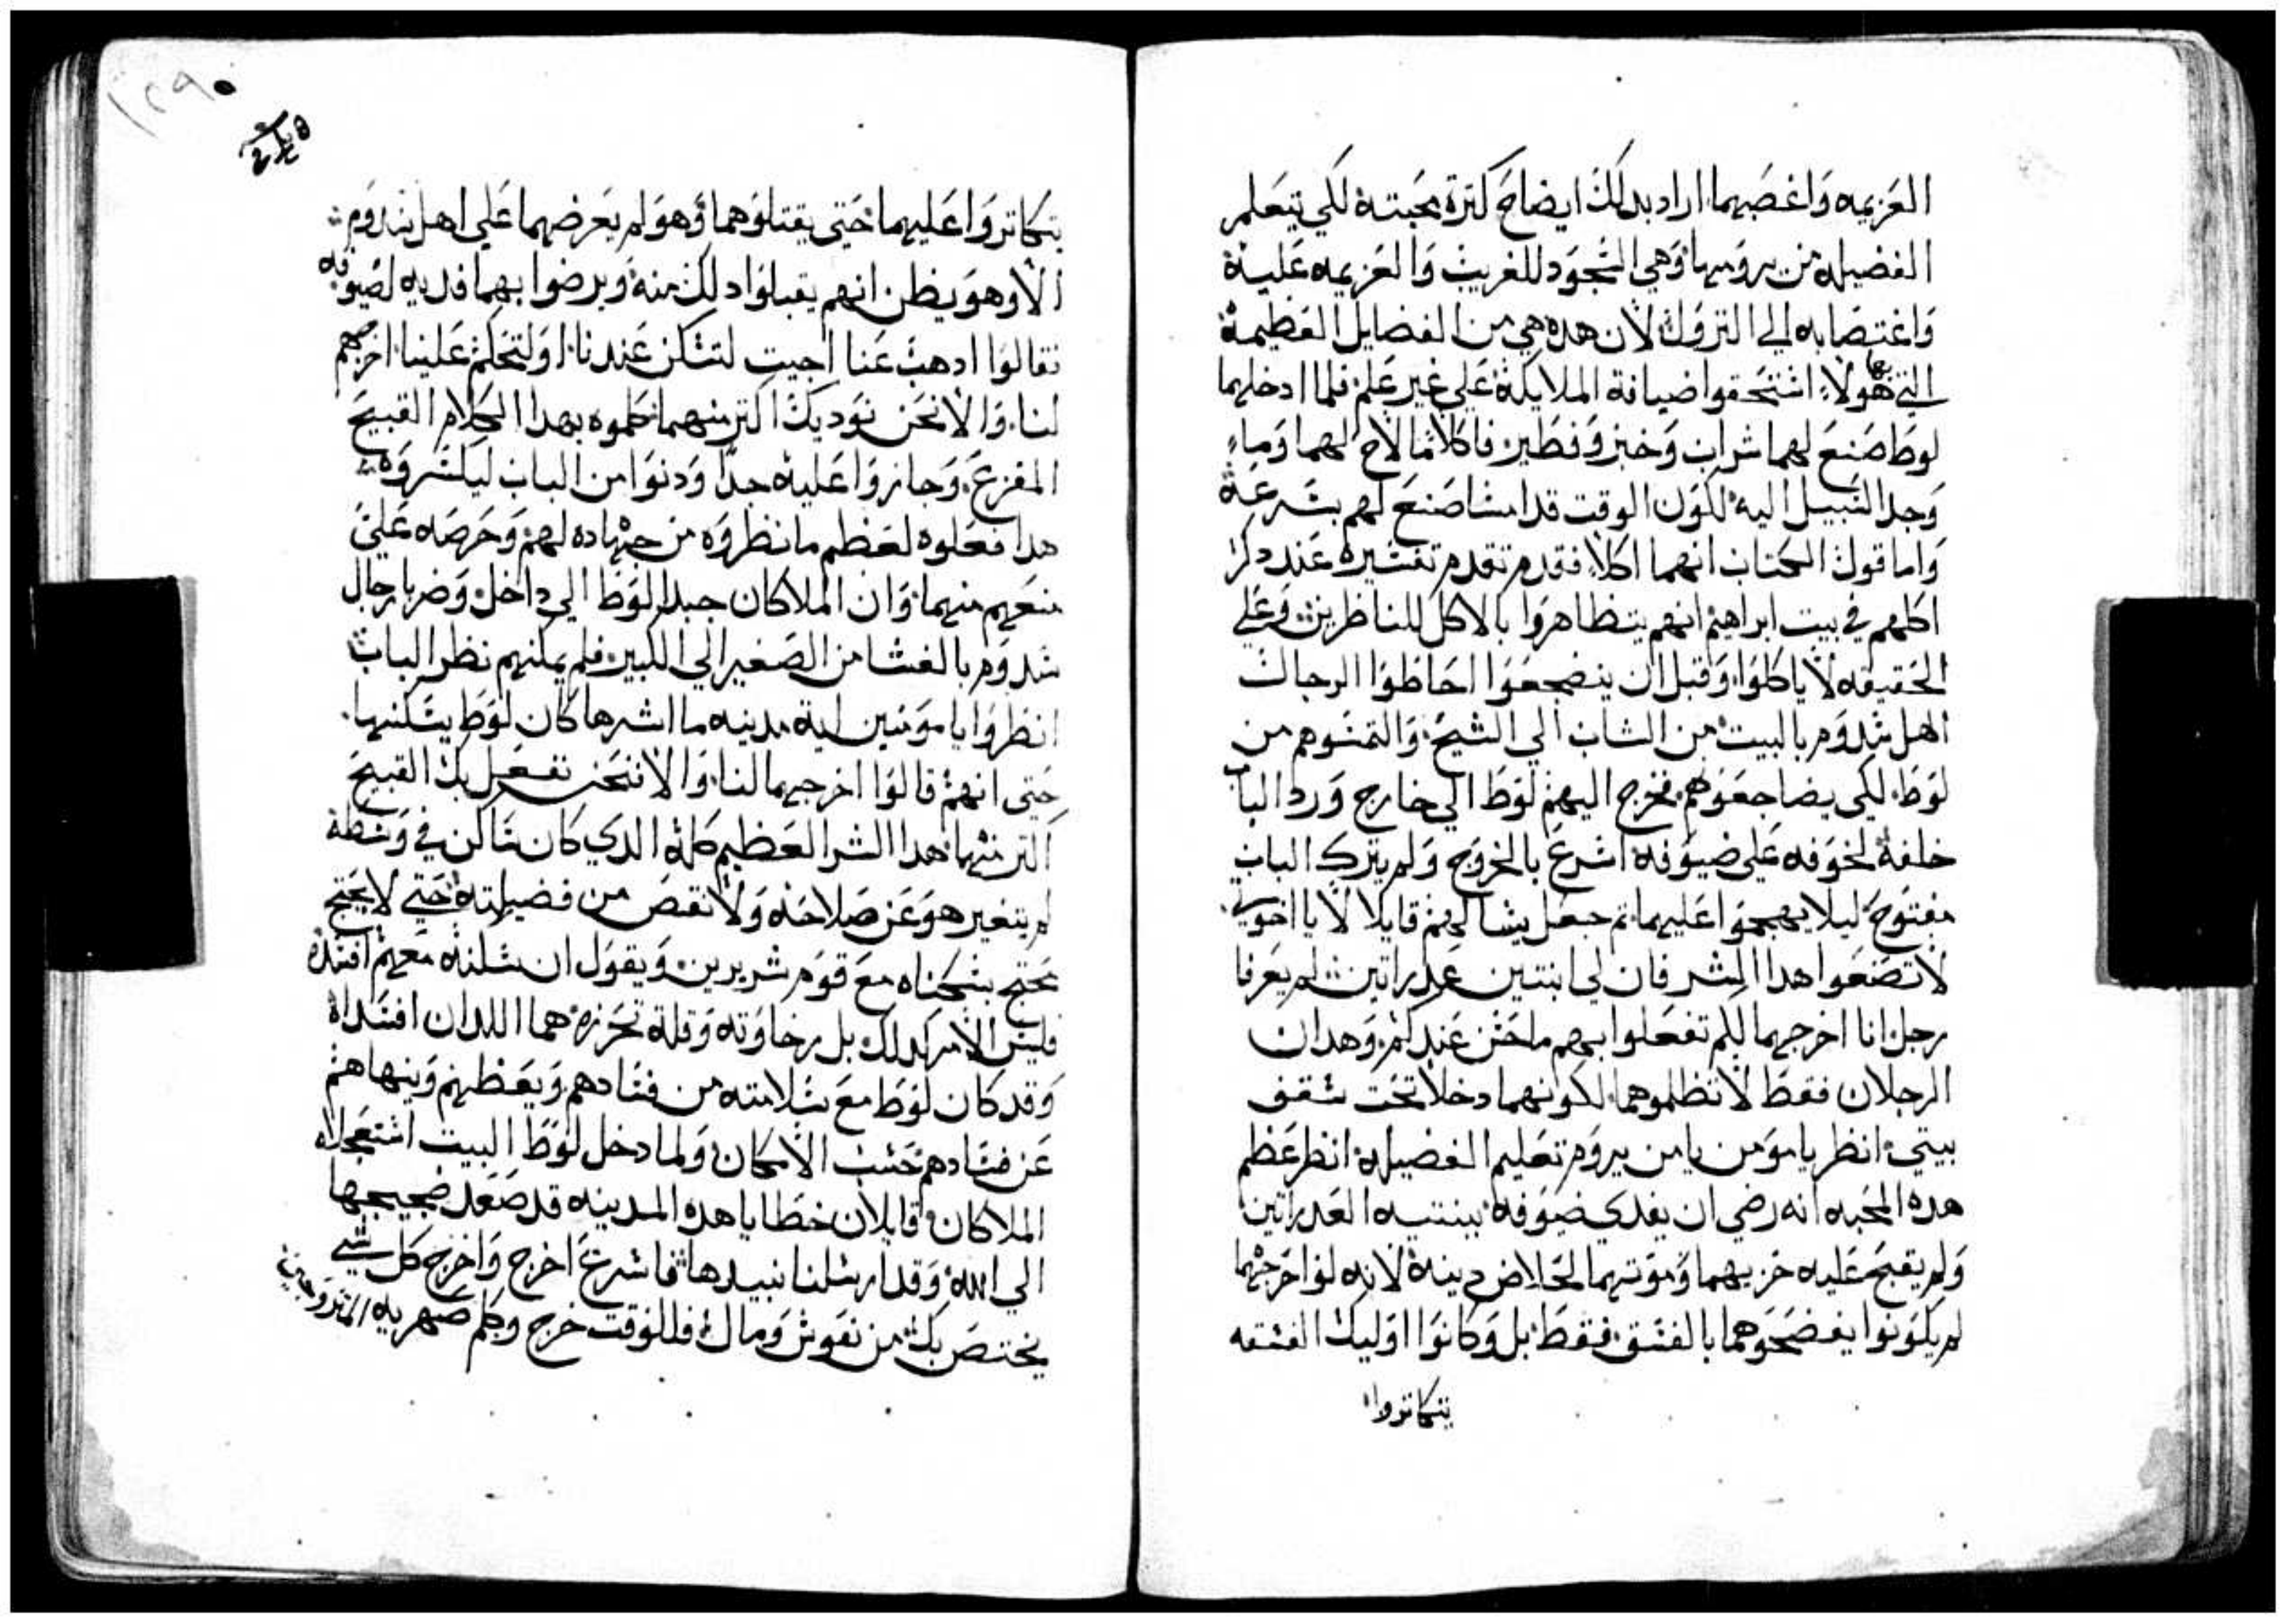 العزيمه واغصبهما اراد بدلك ايضاح كترة محبته لكي يتعلم
الفضيله من يرومها وهي السجود للغريب والعزيمه عليه
واغتصابه الي النزول لان هده هي من الفضايل العظيمة
التي بها هولاء استحقوا ضيافة الملايكة علي غير علم فلما ادخلهما
لوط صنع لهما شراب وخبز وفطير فاكلا مما لاح لهما وما
وجد السبيل اليه لكون الوقت قد امسا صنع لهم بسرعة
واما قول الكتاب انهما اكلا فقدم تقدم تفسيره عند دكر
اكلهم في بيت ابراهيم انهم يتظاهروا بالاكل للناظرين وعلي
الحقيقه لا ياكلوا وقبل ان ينضجعوا احاطوا الرجال
اهل سدوم بالبيت من الشاب الي الشيخ والتمسوهم من
لوط لكي يضاجعوهم فخرج اليهم لوط الي خارج ورد الباب
خلفة لخوفه علي ضيوفه اسرع بالخروج ولم يترك الباب
مفتوح ليلا يهجموا عليهما تم جعل يسالهم قايلا لا يا اخوتي
لا تصنعوا هدا الشر فان لي ابنتين عدراتين لم يعرفا
رجل انا اخرجهما لكم تفعلوا بهم ما حسن عندكم وهدان
الرجلان فقط لا تظلموهما لكونهما دخلا تحت سقف
بيتي انظر يا مومن يا من يروم تعليم الفضيله انظر عظم
هده المحبه انه رضي ان يفدي ضيوفه ببنتيه العدراتين
ولم يقبح عليه خزيهما وموتهما لخلاص دينة لانه لو اخرجهما
لم يكونوا يفضحوهما بالفسق فقط بل وكانوا اوليك الفسقه
يتكاتروا
يتكاتروا عليهما حتي يقتلوهما وهو لم يعرضهما علي اهل سدوم
الا وهو يظن انهم يقبلوا دلك منة ويرضوا بهما فديه لضيوفه
فقالوا ادهب عنا اجيت لتسكن عندنا او لتحكم علينا اخرجهم
لنا والا نحن نوديك اكتر منهما كلموه بهدا الكلام القبيح
المفزع وجازوا عليه جدا ودنوا من الباب ليكسروه
هدا فعلوه لعظم ما نظروه من جهاده لهم وحرصه علي
منعهم منهما وان الملاكان جبدا لوط الي داخل وضربا رجال
سدوم بالغشا من الصغير الي الكبير فلم يمكنهم نظر الباب
انظروا يا مومنين اية مدينه ما اشرها كان لوط يسكنها
حتي انهم قالوا اخرجهما لنا والا فنحن نفعل بك القبيح
اكتر منهما هدا الشر العظيم كلة الدي كان ساكن في وسطة
لم يتغير هو عن صلاحه ولا نقص من فضيلته حتي لا يحتج
محتج بسكناه مع قوم شريرين ويقول ان سكناه معهم افسدة
فليس الامر كدلك بل رخاوته وقلة تحرزه هما اللدان افسداة
وقد كان لوط مع سلامته من فسادهم ويعظهم وينهاهم
عن فسادهم حسب الامكان ولما دخل لوط البيت استعجلاه
الملاكان قايلان خطايا هده المدينه قد صعد ضجيجها
الي الله وقد ارسلنا نبيدها فاسرع اخرج واخرج كل شي
يختص بك من نفوس ومال فللوقت خرج وكلم صهريه المتزوجين